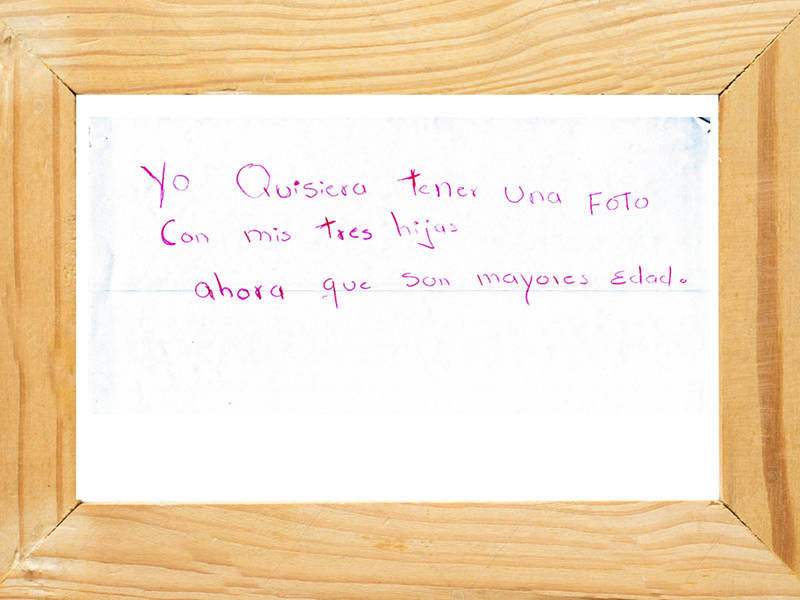 Yo Quisiera tener una FOTO
Con mis tres hijas
ahora que son mayores Edad.